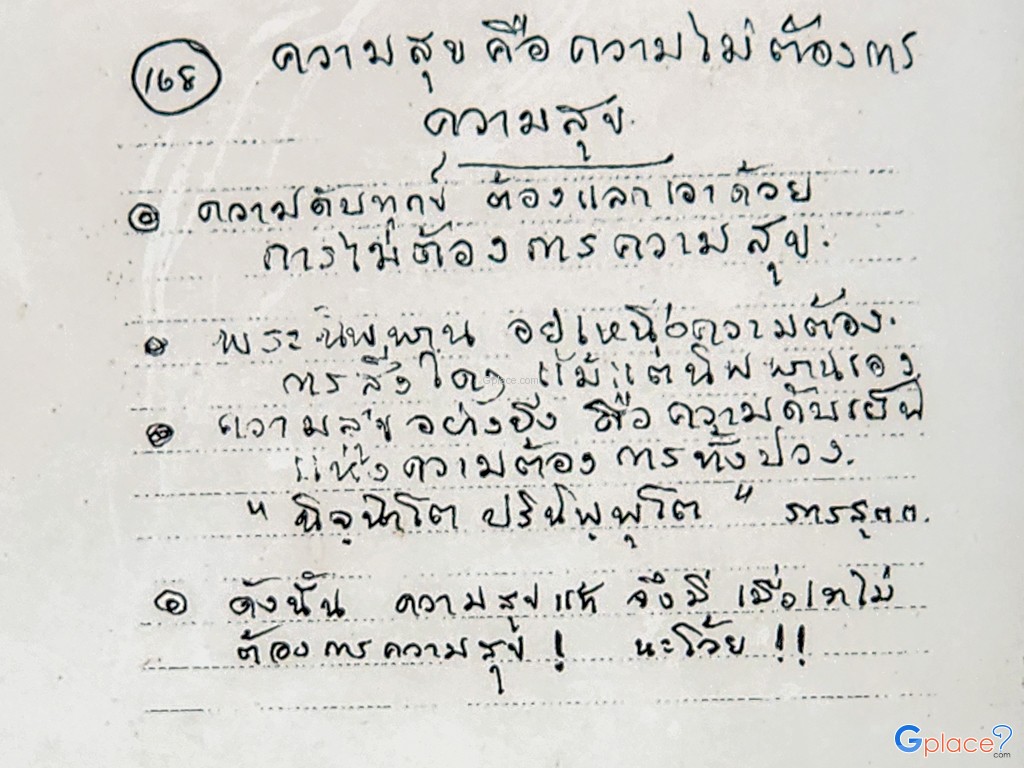 168 ความสุขคือความไม่ต้องการ
ความสุข.
ความดับทุกข์ ต้องแลกเอาด้วย
การไม่ต้องการความสุข.
พระนิพพาน อยู่เหนือความต้อง.
การสิ่งใดๆ แม้แต่นิพพานเอง
ความสุขอย่างยิ่ง คือ ความดับเย็น
แห่งความต้องการทั้งปวง.
" นิจฺฉาโต ปรินิพฺพุโต "
ดังนั้น ความสุขแท้ จึงมี เมื่อเราไม่
ต้องการความสุข ! นะโว้ย !!
Gplace.com
Gplace.com